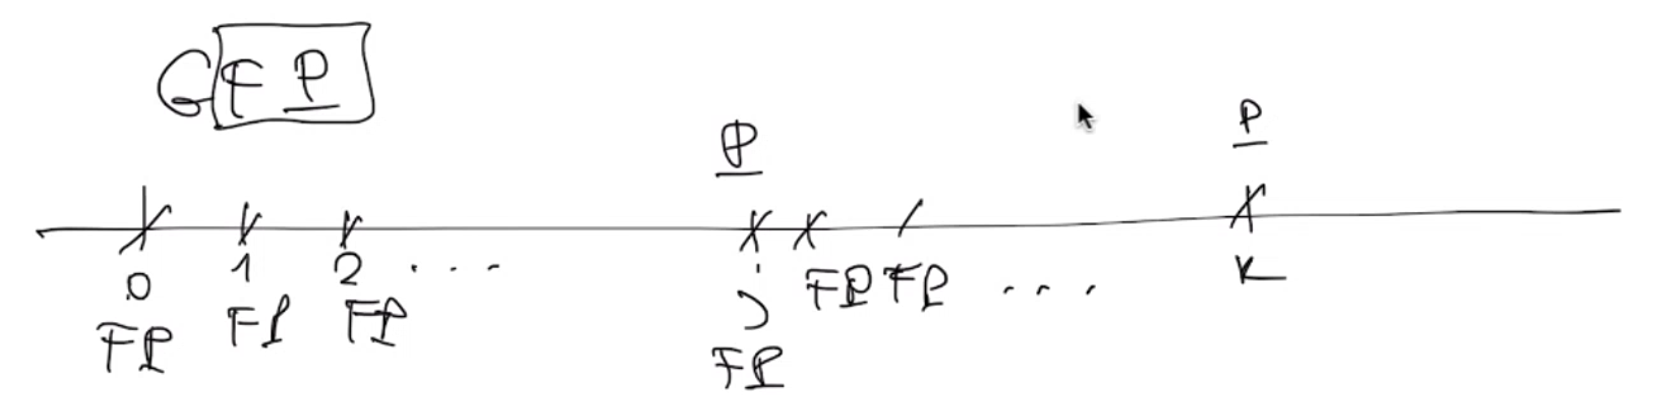 GFP
P P
0 1 2 ... j FP FP ... K
FP FP FP FP